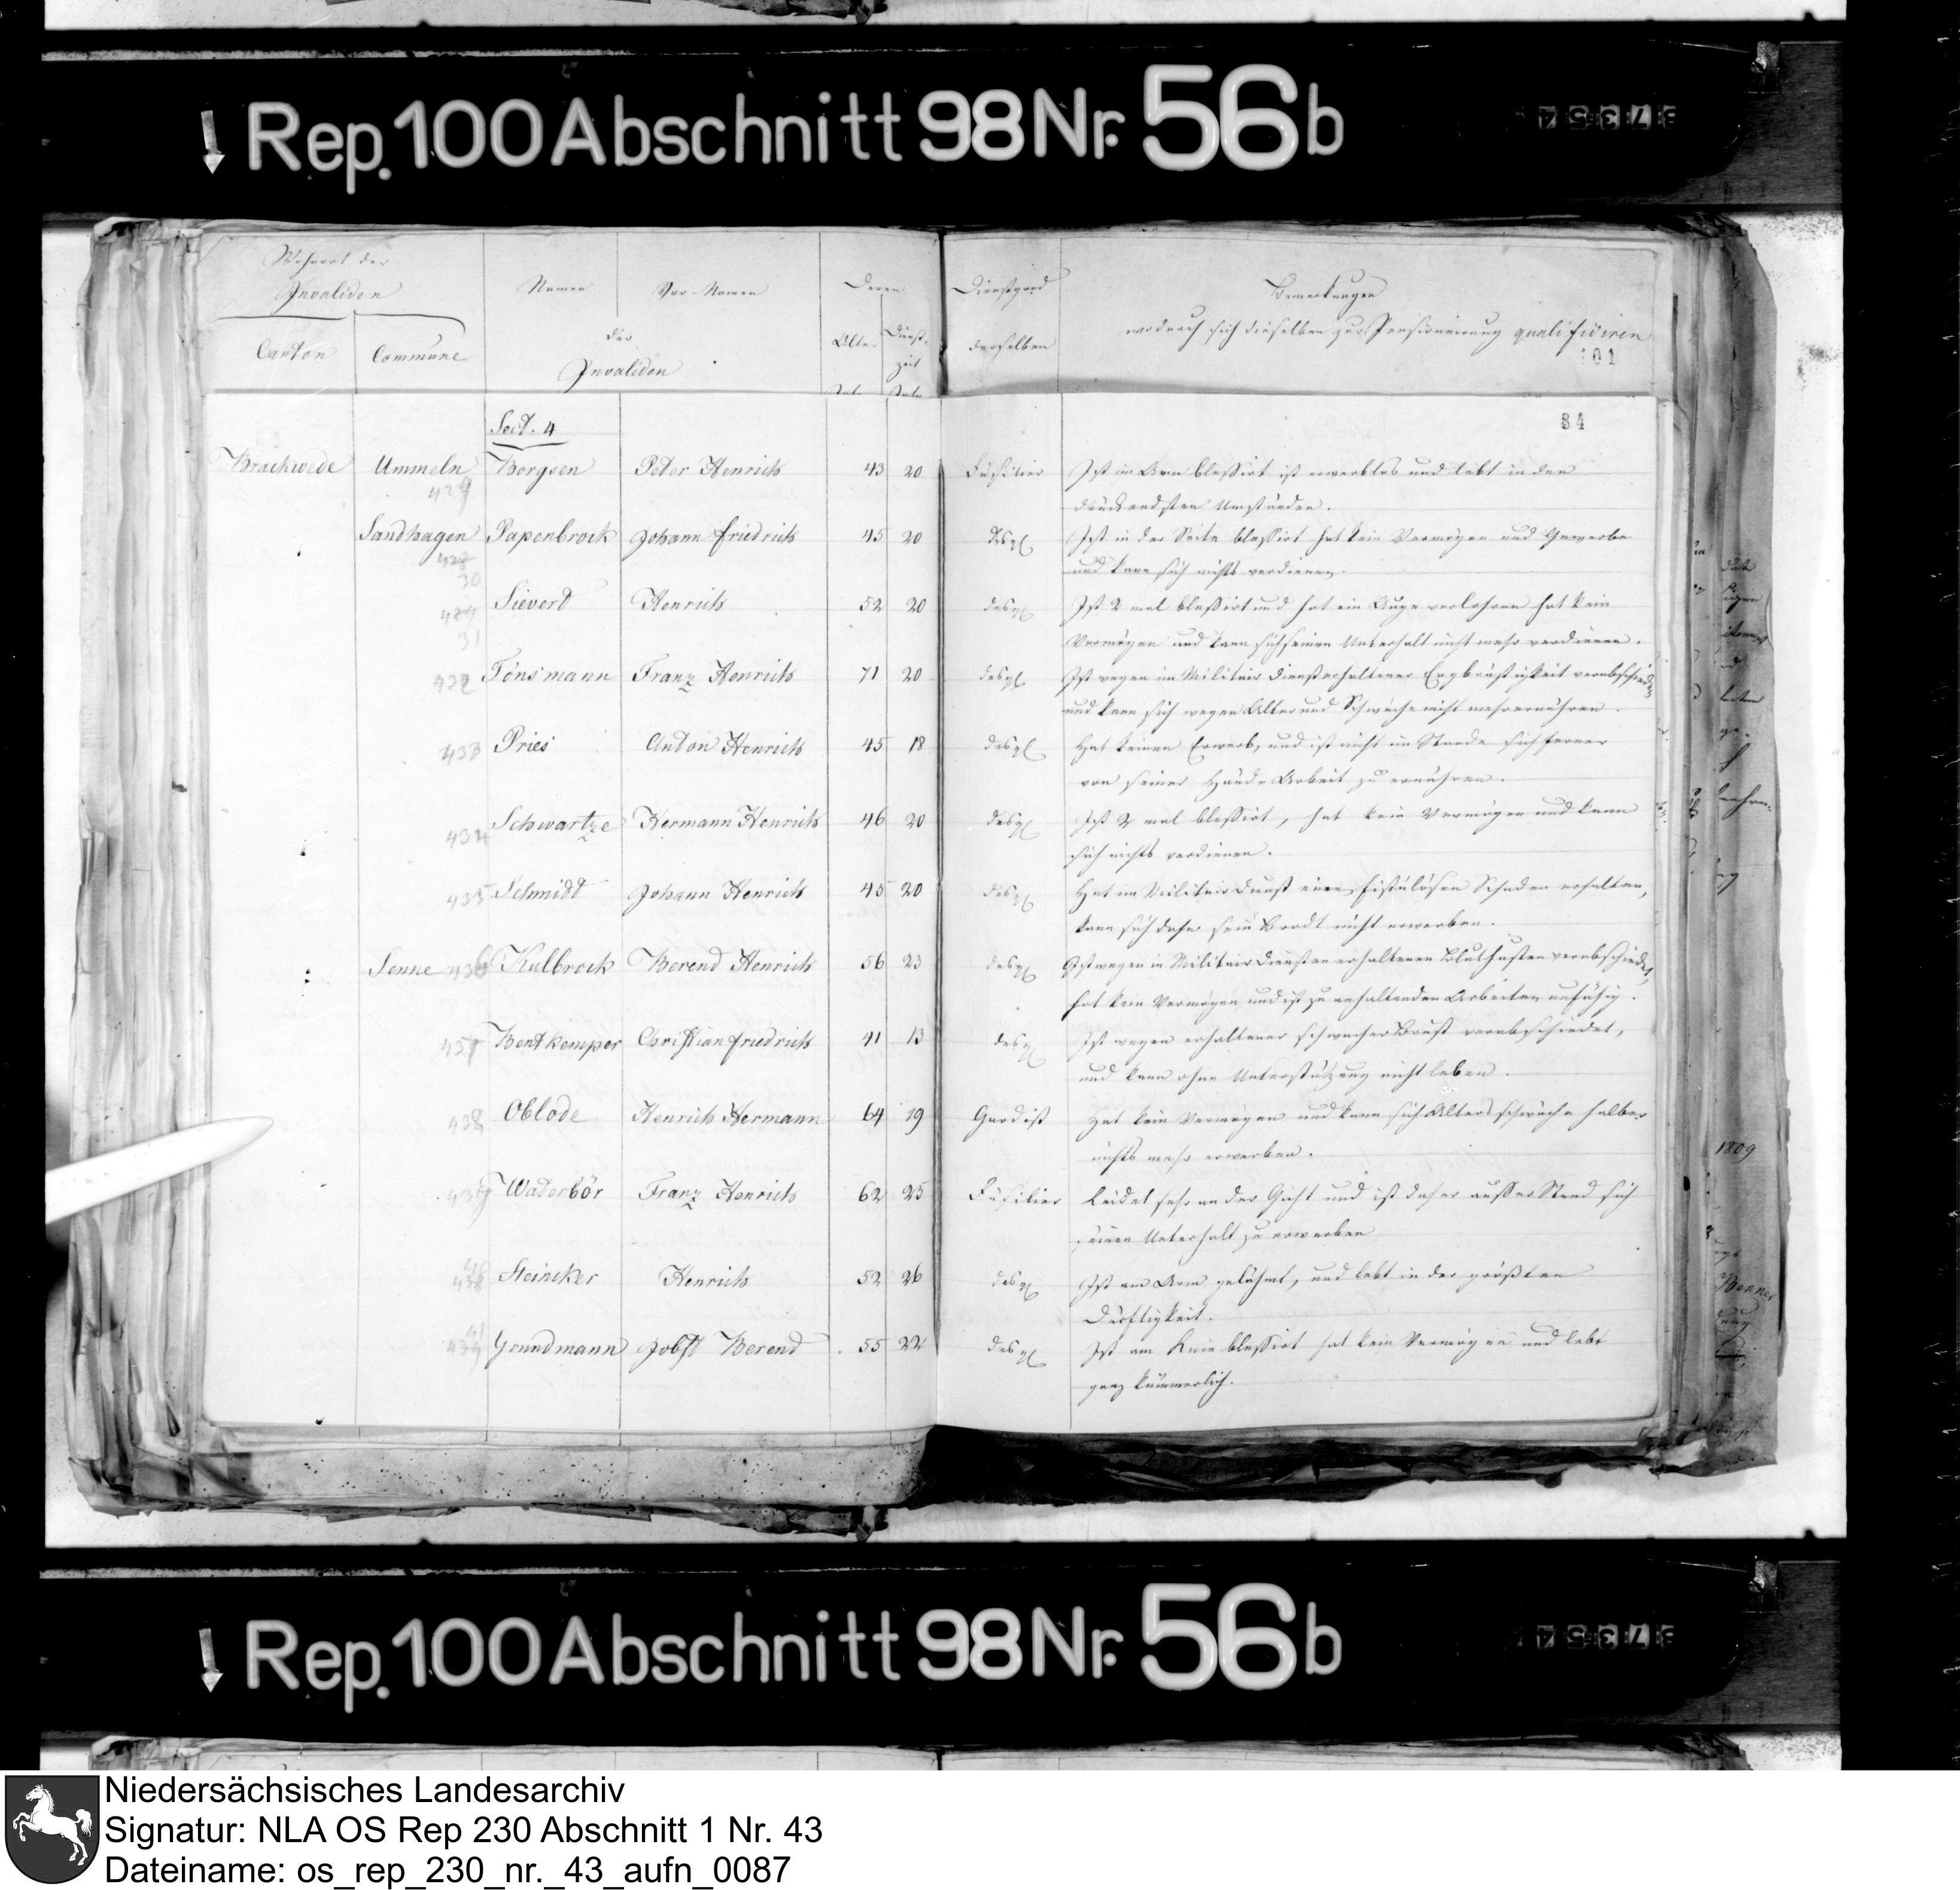 Rep. 100 Abschnitt 98 Nr. 56b
Wohnort der
Invaliden
Canton Commune
Namen Vor-Namen
der
Invaliden
Deren
Alter Dienst-
zeit
Jahr Jahr
Dienstgrad
derselben
Bemerkungen
wodurch sich dieselben zur Pensionierung qualifiziren
101
Sect. 4
34
Brackwede Ummeln Borgsen Peter Henrich 43 20 Füsilier Ist im Arm blessirt ist erwerblos und lebt in den
429 drückendsten Umständen.
Sandhagen Papenbrock Johann Friedrich 45 20 desgl Ist in der Seite blessirt hat kein Vermögen und Gewerbe
30 und kann sich nichts verdienen.
Sieverd Henrich 52 20 desgl Ist 2 mal blessirt und hat ein Auge verlohren hat kein
31 Vermögen und kann sich seinen Unterhalt nicht mehr verdienen.
432 Tönsmann Franz Henrich 71 20 desgl Ist wegen im Militair Dienst erhaltener Engbrüstigkeit verabschiedet
und kann sich wegen Alter und Schwäche nicht mehr ernähren.
433 Pries Anton Henrich 45 18 desgl Hat keinen Erwerb, und ist nicht im Stande sich ferner
von seiner Hände Arbeit zu ernähren.
434 Schwartze Hermann Henrich 46 20 desgl Ist 2 mal blessirt, hat kein Vermögen und kann
sich nichts verdienen.
435 Schmidt Johann Henrich 45 20 desgl Hat im Militair Dienst einen fistulösen Schaden erhalten,
kann sich daher sein Brodt nicht erwerben.
Senne 436 Kulbrock Berend Henrich 56 23 desgl Ist wegen in Militair Diensten erhaltenen Bluthusten verabschiedet,
hat kein Vermögen und ist zu anhaltenden Arbeiten unfähig.
437 Bentkemper Christian Friedrich 41 13 desgl Ist wegen erhaltener schwacher Brust verabschiedet,
und kann ohne Unterstützung nicht leben.
438 Oblode Henrich Hermann 64 19 Gardist Hat kein Vermögen und kann sich Altersschwäche halber
nichts mehr erwerben.
439 Waterbör Franz Henrich 62 25 Füsilier Leidet sehr an der Gicht und ist daher ausser Stand sich
seinen Unterhalt zu erwerben
40 Steineker Henrich 52 26 desgl Ist am Arm gelähmt, und lebt in der größten
Dürftigkeit.
41 Grundmann Jobst Berend 55 22 desgl Ist am Knie blessirt hat kein Vermögen und lebt
ganz kümmerlich.
1809
Rep. 100 Abschnitt 98 Nr. 56b
Niedersächsisches Landesarchiv
Signatur: NLA OS Rep 230 Abschnitt 1 Nr. 43
Dateiname: os_rep_230_nr._43_aufn_0087